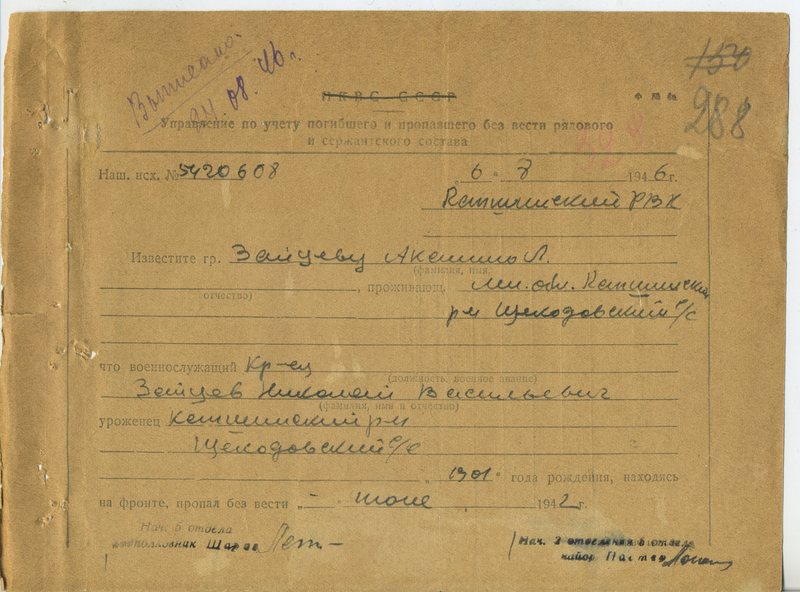 Выписано.
24.08.46г.
150
288
НКВС СССР
Управление по учету погибшего и пропавшего без вести рядового
и сержантского состава
Наш. исх. № 5420608
„ 6 " 7 1946 г.
РВК
Известите гр. Зайцеву
(фамилия, имя,
отчество)
, проживающ.
р-н Щекодовский с/с
что военнослужащий Кр-ец
(должность, военное звание)
Зайцев Николай Васильевич
(фамилия, имя и отчество)
уроженец р-н
Щекодовский с/с
1901 года рождения, находясь
на фронте, пропал без вести „ – июле 1942 г.
Нач. 5 отдела
Нач. 3 отделения 5 отдела
майор